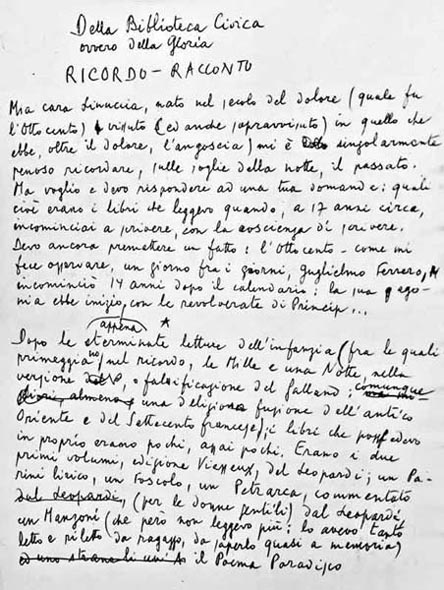 Della Biblioteca Civica
ovvero della Gloria
RICORDO - RACCONTO
Mia cara Linuccia, nato nel secolo del dolore (quale fu
l'Ottocento) vissuto (ed anche sopravvissuto) in quello che
ebbe, oltre il dolore, l'angoscia) mi è singolarmente
penoso ricordare, sulle soglie della notte, il passato.
Ma voglio e devo rispondere ad una tua domanda: quali
cioè erano i libri che leggevo quando, a 17 anni circa,
incominciai a scrivere, con la coscienza di scrivere.
Devo ancora premettere un fatto: l'Ottocento - come mi
fece osservare, un giorno fra i giorni, Guglielmo Ferrero,
incominciò 14 anni dopo il calendario: la sua ago-
nia ebbe inizio, con le revolverate di Princip...
appena *
Dopo le sterminate letture dell'infanzia (fra le quali
primeggiano, nel ricordo, le Mille e una Notte, nella
versione, o falsificazione del Galland; comunque
una deliziosa fusione dell'antico
Oriente e del Settecento francese); i libri che possedevo
in proprio erano pochi, assai pochi. Erano i due
primi volumi, edizione Vieusseux, del Leopardi; un Pa-
rini lirico, un Foscolo, un Petrarca, commentato
dal Leopardi, (per le donne gentili) dal Leopardi
un Manzoni (che però non leggevo più: lo avevo tanto
letto e riletto da ragazzo, da saperlo quasi a memoria)
il Poema Paradisiaco